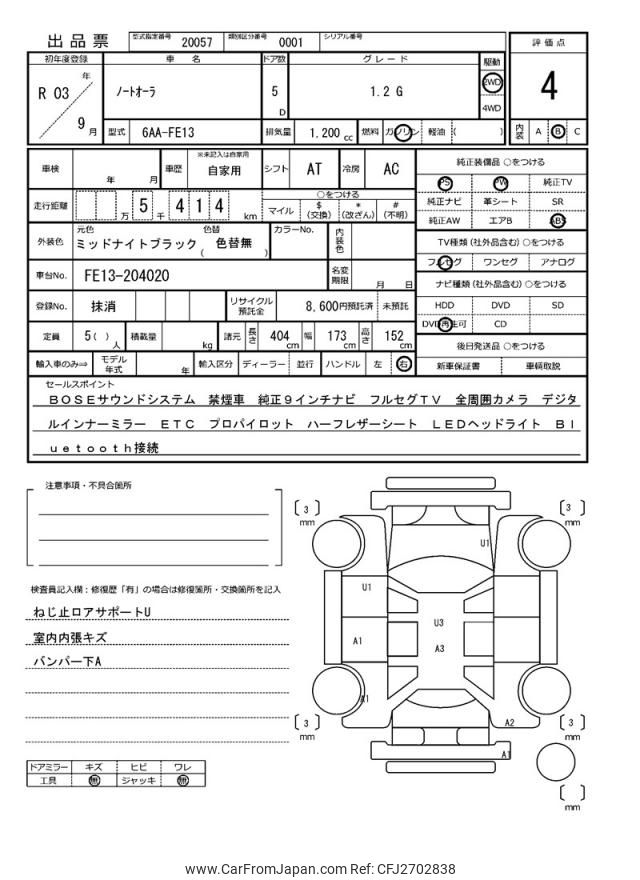 出品票
型式指定番号 20057 類別区分番号 0001 シリアル番号
評価点
4
初年度登録 車名 ドア数 グレード 駆動
R 03 年 9 月
ノートオーラ 5 D 1.2 G 2WD
4WD
型式 6AA-FE13 排気量 1,200 cc 燃料 ガソリン 軽油 ( )
内装 A B C
車検 年 月 車歴 ※未記入は自家用 自家用 シフト AT 冷房 AC
純正装備品 ○をつける
PS PW 純正TV
純正ナビ 革シート SR
純正AW エアB ABS
走行距離 万 5 千 4 1 4 km ○をつける
マイル $(交換) *(改ざん) #(不明)
外装色 元色 ミッドナイトブラック 色替 ( 色替無 ) カラーNo. 内装色
TV種類 (社外品含む) ○をつける
フルセグ ワンセグ アナログ
車台No. FE13-204020 名変期限 月 日
ナビ種類 (社外品含む) ○をつける
HDD DVD SD
DVD再生可 CD
登録No. 抹消 リサイクル預託金 8,600円預託済 未預託
定員 5( ) 人 積載量 kg 諸元 長さ 404 cm 幅 173 cm 高さ 152 cm
後日発送品 ○をつける
新車保証書 車輌取説
輸入車のみ⇒ モデル年式 年 輸入区分 ディーラー 並行 ハンドル 左 右
セールスポイント
ＢＯＳＥサウンドシステム 禁煙車 純正９インチナビ フルセグＴＶ 全周囲カメラ デジタ
ルインナーミラー ＥＴＣ プロパイロット ハーフレザーシート ＬＥＤヘッドライト Ｂｌ
ｕｅｔｏｏｔｈ接続
注意事項・不具合箇所
検査員記入欄：修復歴「有」の場合は修復箇所・交換箇所を記入
ねじ止ロアサポートU
室内内張キズ
バンパー下A
ドアミラー キズ ヒビ ワレ
工具 無 ジャッキ 無
[ 3 ] mm
[ 3 ] mm
U1
U1
U3
A1
A3
A1
A2
[ 3 ] mm
[ 3 ] mm
A1
[ ] mm
www.CarFromJapan.com Ref: CFJ2702838